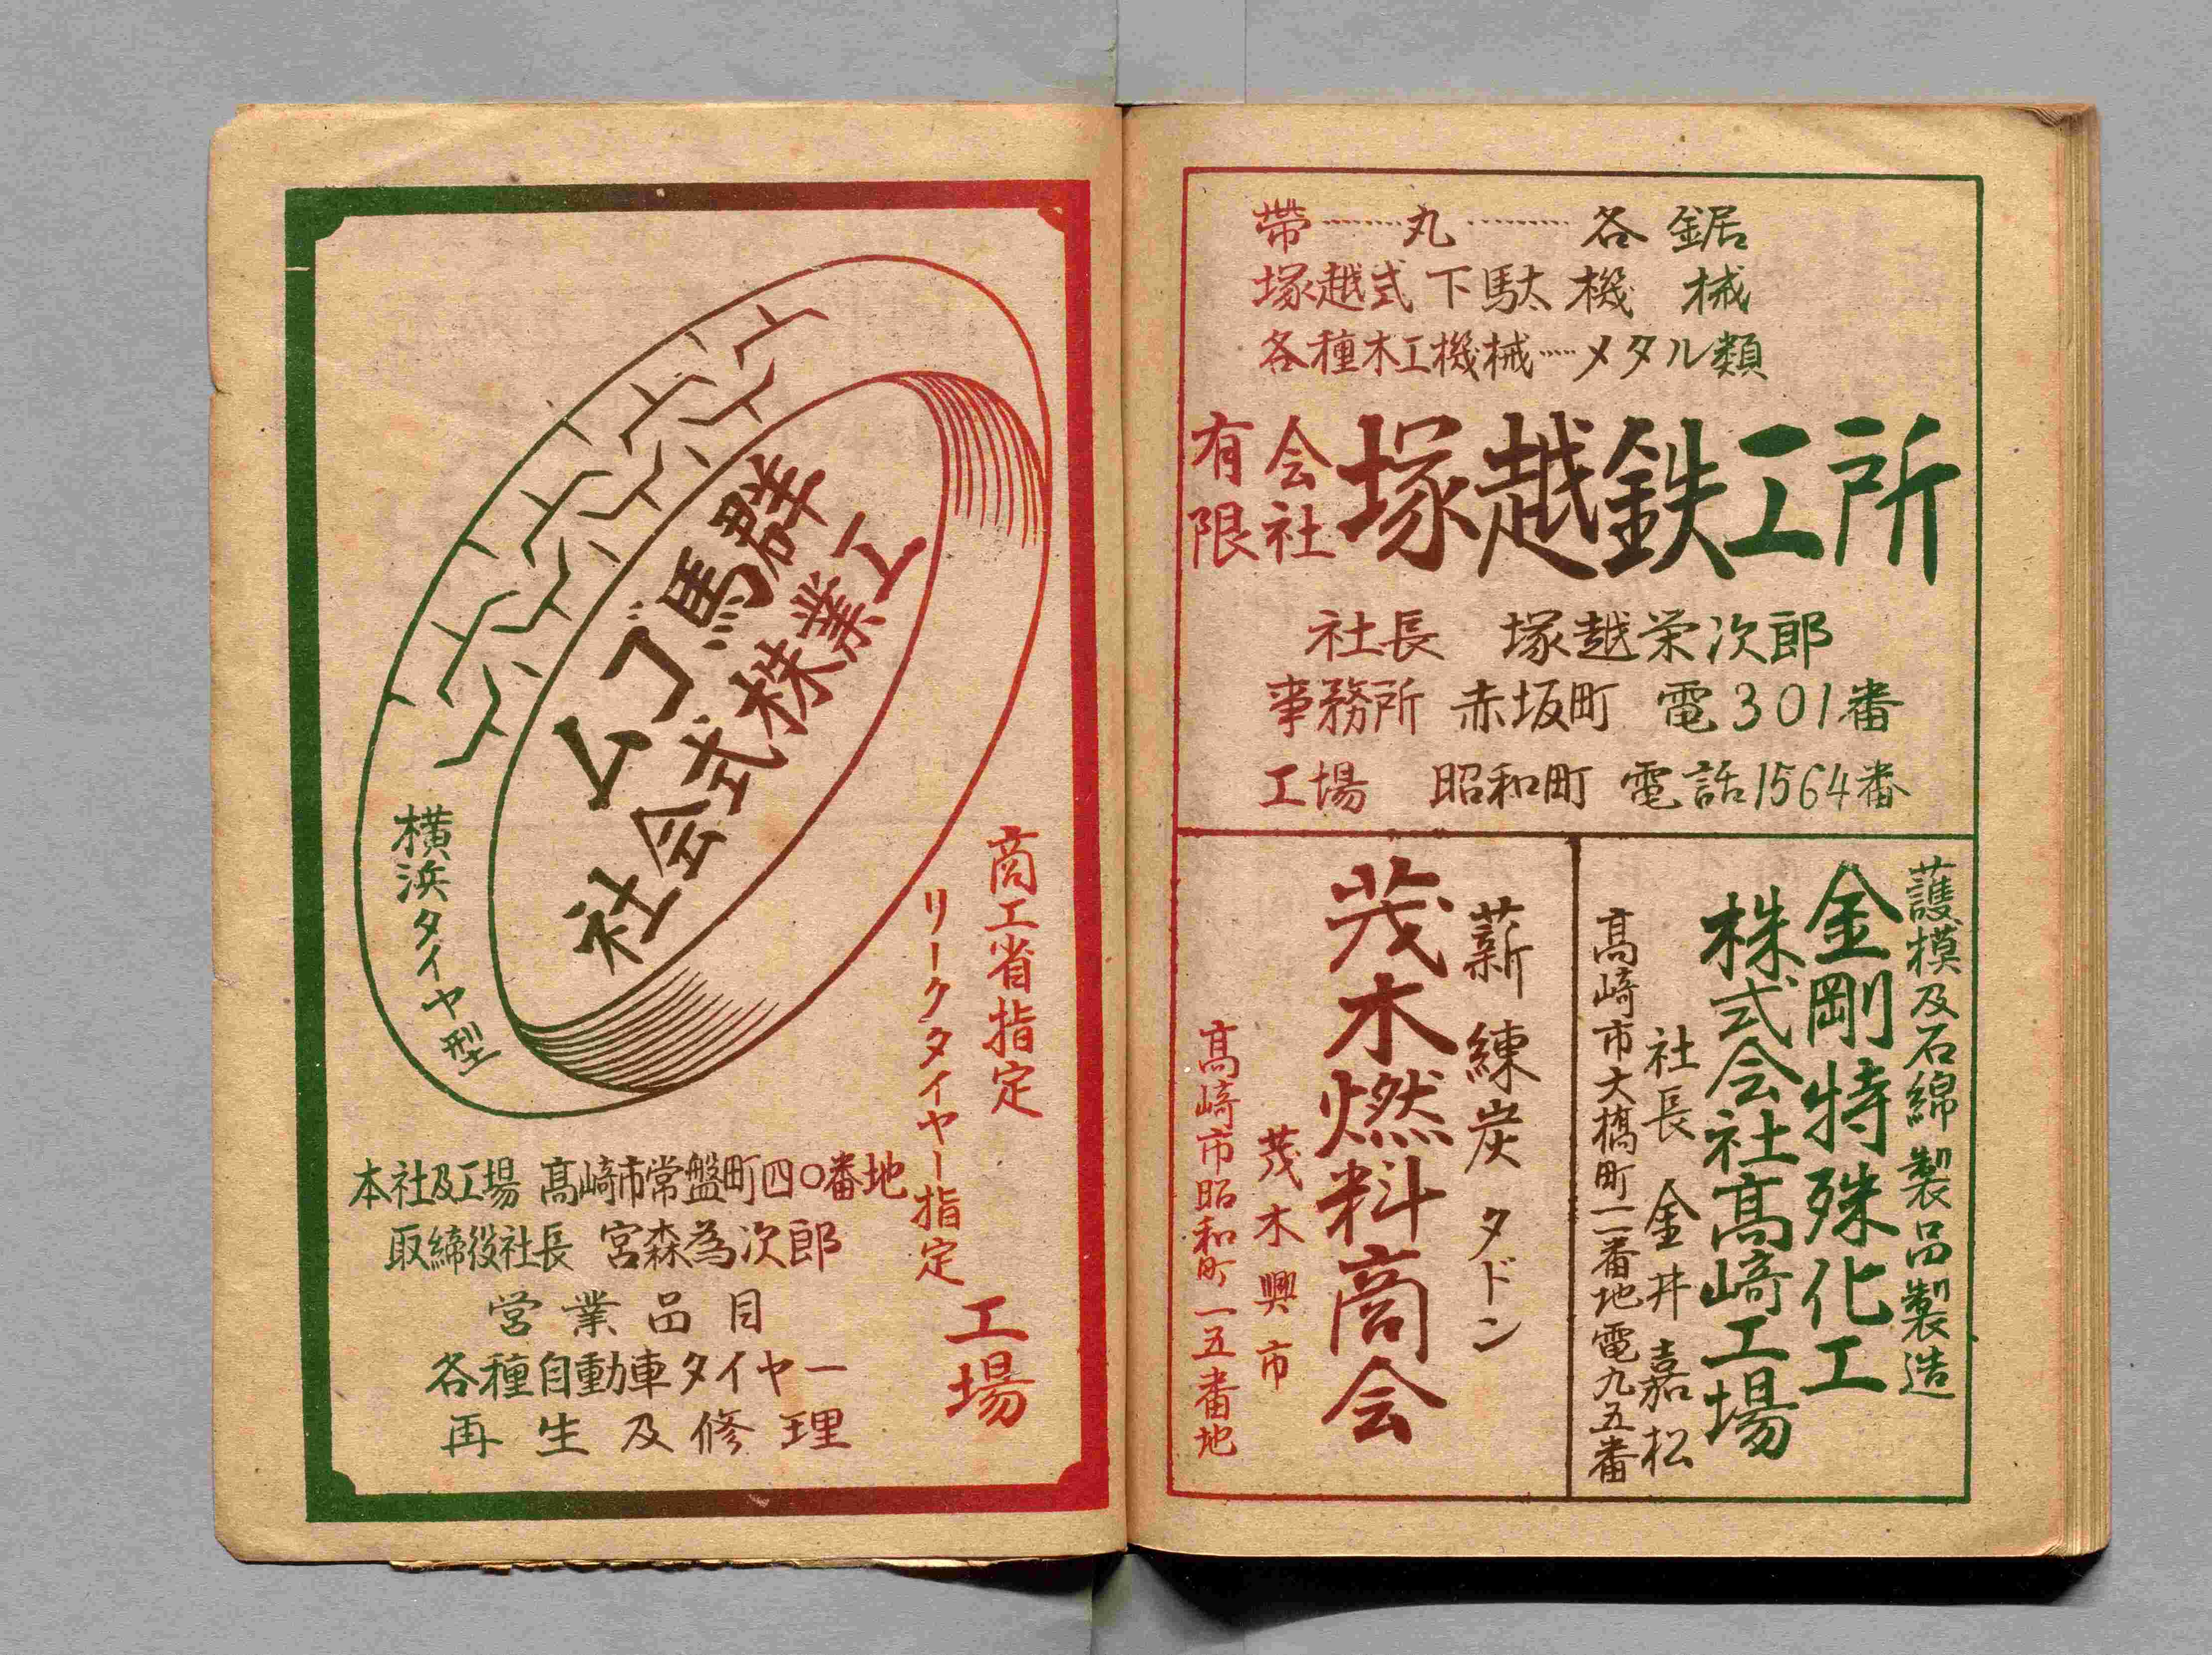 帯………丸………各鋸
塚越式下駄機械
各種木工機械……メタル類
有限会社塚越鉄工所
社長 塚越栄次郎
事務所 赤坂町 電301番
工場 昭和町 電話1564番
護模及石綿製品製造
金剛特殊化工
株式会社高崎工場
社長 金井嘉松
高崎市大橋町二番地電九五番
薪 練炭 タドン
茂木燃料商会
茂木興市
高崎市昭和町一五番地
商工省指定
リークタイヤー指定
工場
群馬ゴム
工業株式会社
横浜タイヤ型
本社及工場 高崎市常盤町四〇番地
取締役社長 宮森為次郎
営業品目
各種自動車タイヤー
再生及修理